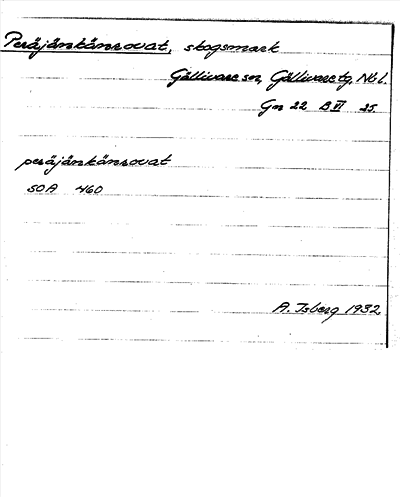 Peräjänkänrovat, skogsmark
Gällivare sn, Gällivare tg, Nbl.
Gn 22 B VI 25.
peräjänkänrovat
SOA 460
A. Isberg 1932